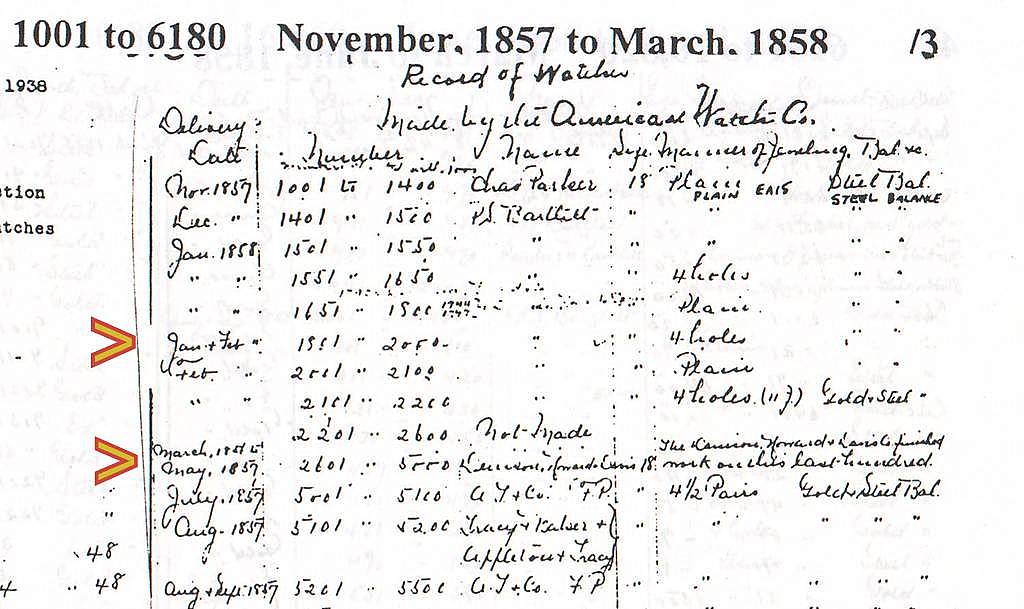 1001 to 6180 November, 1857 to March, 1858 /3
1938
Record of Watches
Delivery: Made by the American Watch Co.
Date Number Name Size Manner of Jeweling. Bal. &c.
Nov. 1857 1001 to 1400 Chas Parker 18 Plain Steel Bal.
PLAIN STEEL BALANCE
tion
Dec. " 1401 " 1500 P.S. Bartlett " " " "
tches
Jan. 1858 1501 " 1550 " " " " "
" " 1551 " 1650 " " 4 holes " "
" " 1651 " 1900 " Plain " "
Jan + Feb " 1901 " 2000 " " " 4 holes " "
Feb. " 2001 " 2100 " " Plain " "
" " 2101 " 2200 " 4 holes. (11 J.) Gold & Steel "
2201 " 2600 Not Made
March, to The Dennison, Howard & Davis Co finished
May, 1857 2601 " 5000 Dennison, Howard & Davis 18 work on this last hundred.
" July, 1857 5001 " 5100 A.T. & Co. F.P. " 4 1/2 Pairs Gold & Steel Bal.
" Aug. 1857 5101 " 5200 Tracy + Baker + " " " " "
48 Appleton & Tracy
4 " 48 Aug & Sept 1857 5201 " 5500 A.T. & Co. F P " " " " "